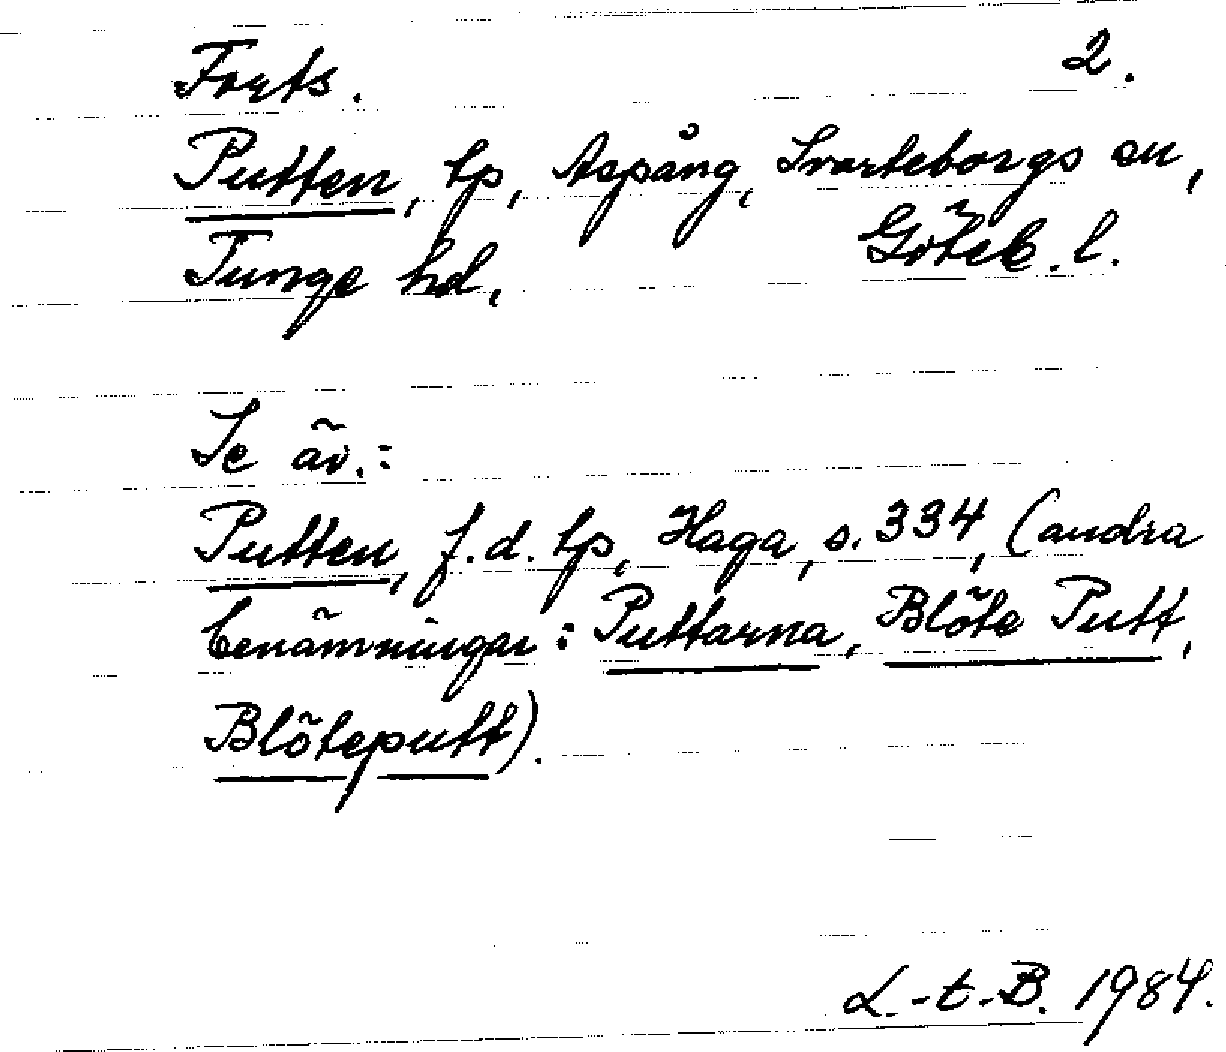 Forts. 2.
Putten, tp, Aspång, Svarteborgs sn,
Tunge hd, Göteb. l.
Se äv.:
Putten, f.d. tp, Haga, s. 334, (andra
benämningar: Puttarna, Blöte Putt,
Blöteputt).
L.-t.-B. 1984.